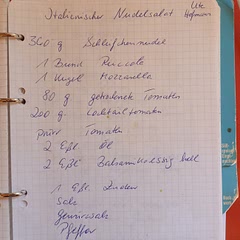 Italienischer Nudelsalat Ute
Hofmann
360 g Schleifchennudel
1 Bund Ruccola
1 Kugel Mozzarella
80 g getrocknete Tomaten
200 g Cocktailtomaten
pürr Tomaten
2 Eßl Öl
2 Eßl Balsamikoessig hell
1 Eßl. Zucker
Salz
Gewürzsalz
Pfeffer